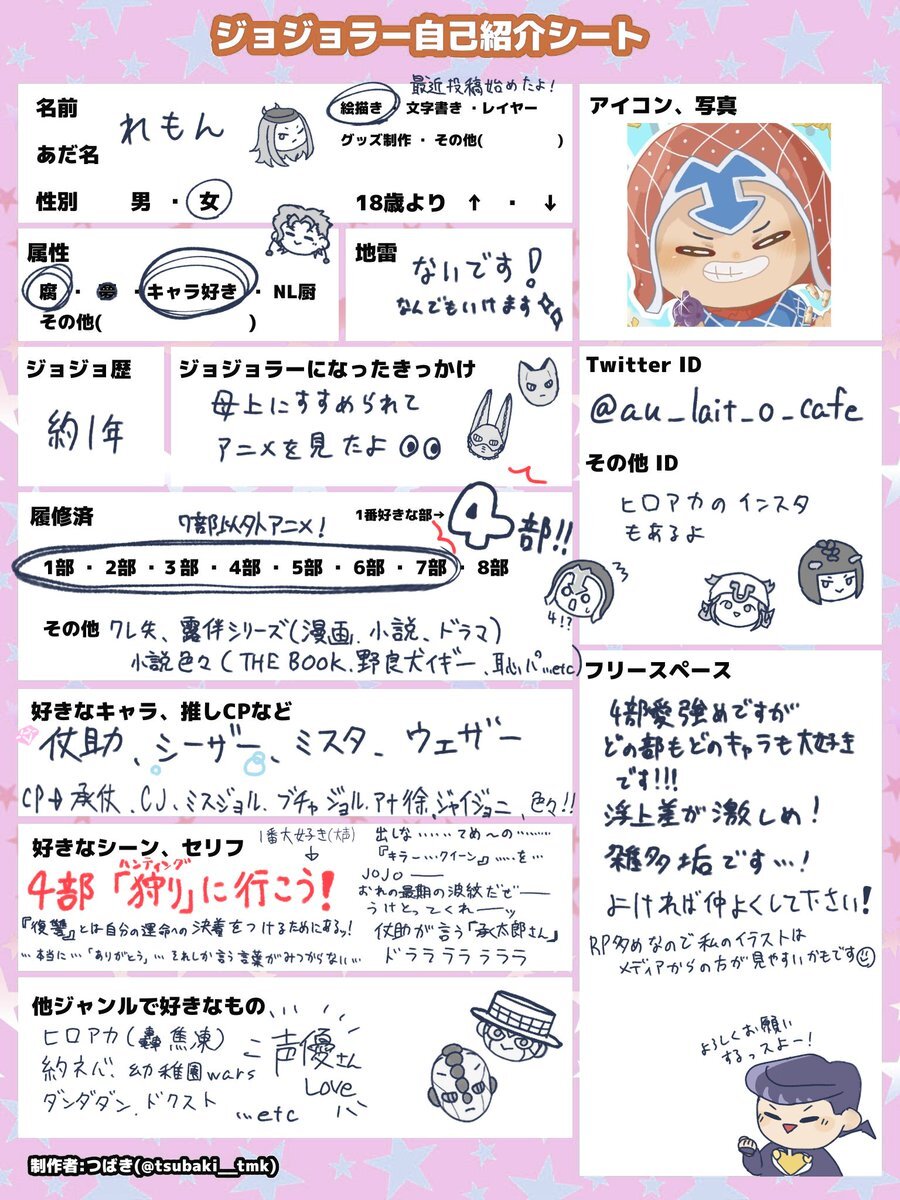 ジョジョラー自己紹介シート
名前
れもん
あだ名
性別 男 ・ 女
最近投稿始めたよ！
絵描き 文字書き ・ レイヤー
グッズ制作 ・ その他( )
18歳より ↑ ・ ↓
アイコン、写真
属性
腐 ・ 夢 ・ キャラ好き ・ NL厨
その他( )
地雷
ないです！
なんでもいけます
ジョジョ歴
約1年
ジョジョラーになったきっかけ
母上にすすめられて
アニメを見たよ
Twitter ID
@au_lait_o_cafe
その他 ID
ヒロアカのインスタ
もあるよ
履修済
7部以外アニメ！
1番好きな部→
4部!!
1部 ・ 2部 ・ 3部 ・ 4部 ・ 5部 ・ 6部 ・ 7部 ・ 8部
4!?
その他 クレ失、露伴シリーズ(漫画、小説、ドラマ)
小説色々(THE BOOK、野良犬イギー、恥パ…etc)
好きなキャラ、推しCPなど
仗助、シーザー、ミスタ、ウェザー
CP→承仗、CJ、ミスジョル、ブチャジョル、アナ徐、ジャイジョニ、色々!!
好きなシーン、セリフ
1番大好き(大声)
↓
4部「狩り」に行こう！
ハンティング
『復讐』とは自分の運命への決着をつけるためにあるッ!
…本当に…「ありがとう」… それしか言う言葉がみつからない…
出しな……てめ〜の………
『キラー…クイーン』……を…
JOJO――
おれの最期の波紋だぜ――
うけとってくれ――ッ
仗助が言う「承太郎さん」
ドラララララララ
他ジャンルで好きなもの
ヒロアカ(轟焦凍)
約ネバ 幼稚園wars
ダンダダン、ドクスト
…etc
声優さん
Love
フリースペース
4部愛強めですが
どの部もどのキャラも大好き
です!!!
浮上差が激しめ！
雑多垢です…！
よければ仲よくして下さい！
RP多めなので私のイラストは
メディアからの方が見やすいかもです
よろしくお願い
するっスよー！
制作者:つばき(@tsubaki__tmk)